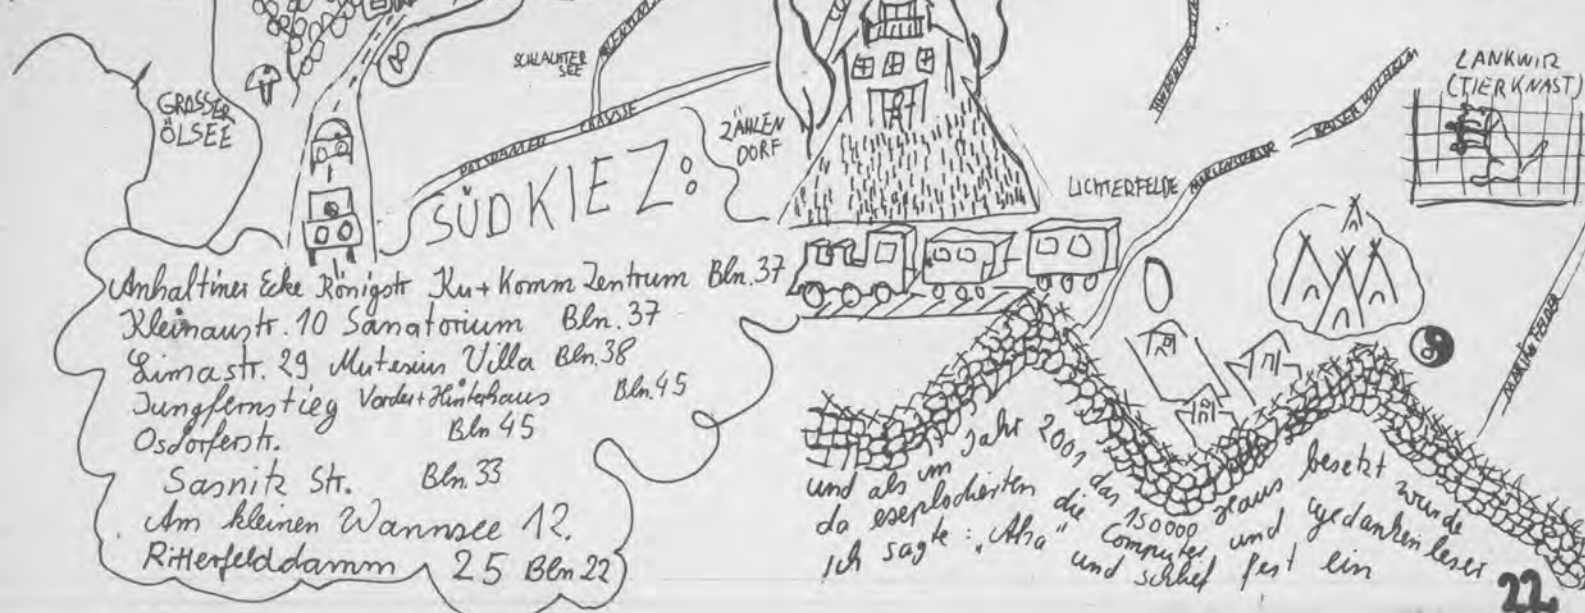 GROSSER
ÖLSEE
SCHLACHTER
SEE
POTSDAMER CHAUSSE
ZÄHLEN
DORF
LICHTERFELDE
KAISER WILHELM
LANKWIR
(TIERKNAST)
SÜDKIEZ:
Anhaltiner Ecke Königstr Ku+Komm Zentrum Bln.37
Kleinaustr. 10 Sanatorium Bln.37
Limastr. 29 Mutesius Villa Bln.38
Jungfernstieg Vorder+Hinterhaus Bln.45
Osdorferstr. Bln 45
Sasnitz Str. Bln.33
Am kleinen Wannsee 12.
Ritterfelddamm 25 Bln 22
und als im Jahr 2001 das 150000 Haus besetzt wurde
da eseplodierten die Computer und gedankenleser
ich sagte: „Aha" und schlief fest ein
22.